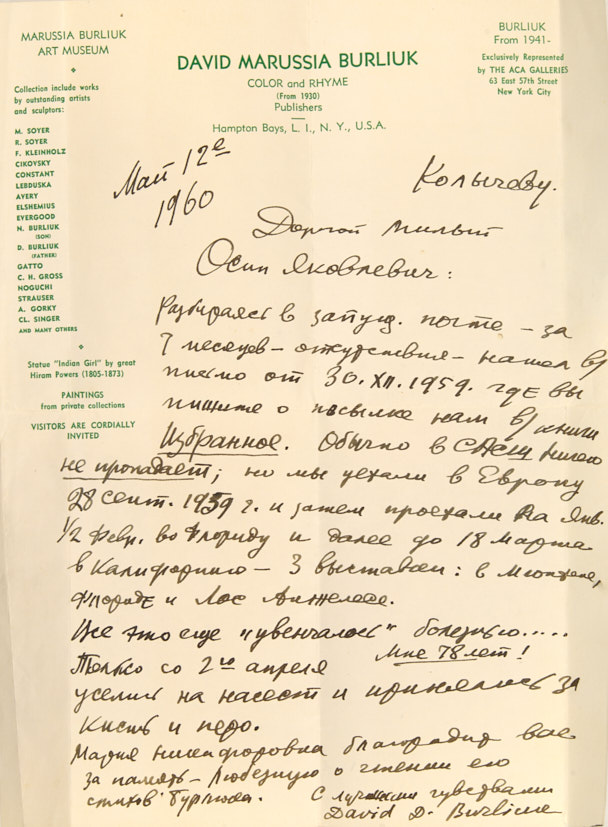 MARUSSIA BURLIUK
ART MUSEUM
Collection include works
by outstanding artists
and sculptors:
M. SOYER
R. SOYER
F. KLEINHOLZ
CIKOVSKY
CONSTANT
LEBDUSKA
AVERY
ELSHEMIUS
EVERGOOD
N. BURLIUK
(SON)
D. BURLIUK
(FATHER)
GATTO
C. H. GROSS
NOGUCHI
STRAUSER
A. GORKY
CL. SINGER
AND MANY OTHERS
Statue "Indian Girl" by great
Hiram Powers (1805-1873)
PAINTINGS
from private collections
VISITORS ARE CORDIALLY
INVITED
DAVID MARUSSIA BURLIUK
COLOR and RHYME
(From 1930)
Publishers
Hampton Bays, L. I., N. Y., U.S.A.
BURLIUK
From 1941-
Exclusively Represented
by THE ACA GALLERIES
63 East 57th Street
New York City
Май 12е
1960
Колычеву.
Дорогой милый
Осип Яковлевич:
Разбираясь в запущ. почте – за
7 месяцев – отсутствия – нашел в/
письмо от 30.XII.1959. где вы
пишите о посылке нам в/ книги
Избранное. Обычно в США ничего
не пропадает; но мы уехали в Европу
28 сент. 1959 г. и затем проехали на Янв.
1/2 февр. во Флориду и далее до 18 марта
в Калифорнию – 3 выставки: в
Флориде и Лос Анжелесе.
Все это еще "увенчалось" болезнью.....
Мне 78 лет!
Только со 2го апреля
уселись на насест и принялись за
кисть и перо.
Мария Никифоровна благодарит вас
за память – любезную о чтении его
стихов Бурлюка. С лучшими чувствами
David D. Burliuk